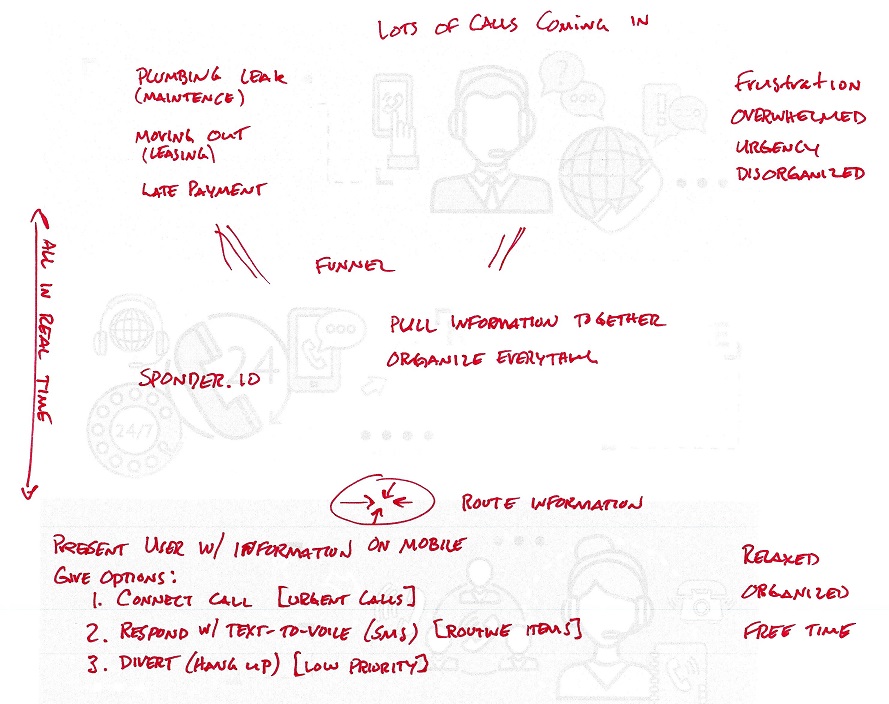 LOTS OF CALLS COMING IN
PLUMBING LEAK
(MAINTENCE)
MOVING OUT
(LEASING)
LATE PAYMENT
FRUSTRATION
OVERWHELMED
URGENCY
DISORGANIZED
ALL IN REAL TIME
FUNNEL
PULL INFORMATION TOGETHER
ORGANIZE EVERYTHING
SPONDER.IO
24
24/7
ROUTE INFORMATION
PRESENT USER W/ INFORMATION ON MOBILE
GIVE OPTIONS:
1. CONNECT CALL [URGENT CALLS]
2. RESPOND W/ TEXT-TO-VOICE (SMS) [ROUTINE ITEMS]
3. DIVERT (HANG UP) [LOW PRIORITY]
RELAXED
ORGANIZED
FREE TIME